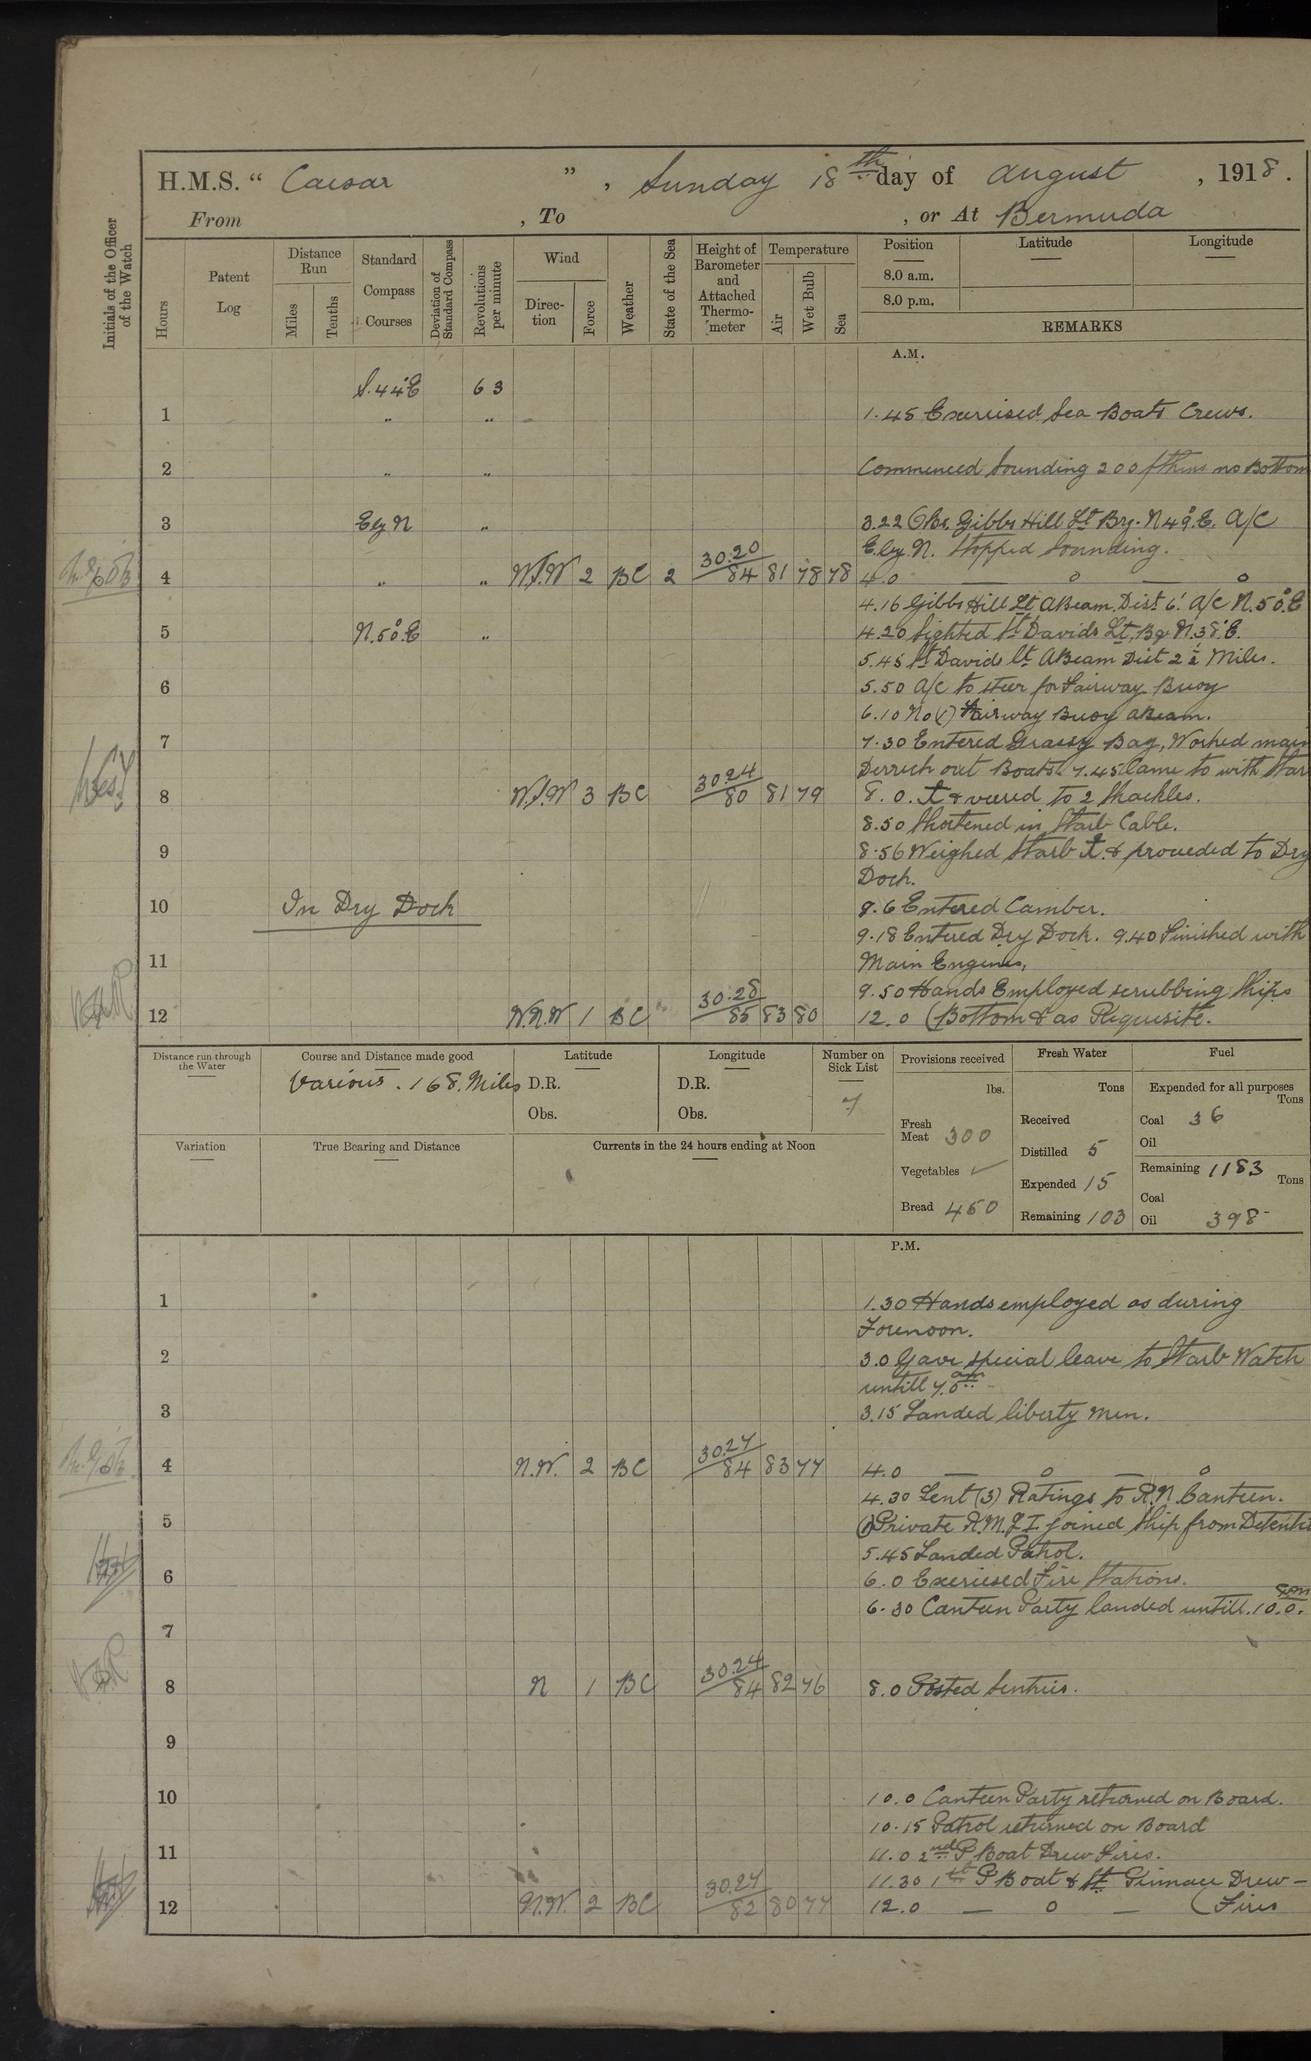 H.M.S. “ Caesar ”, Sunday 18th day of August, 1918.
From , To , or At Bermuda
Initials of the Officer of the Watch
Hours
Patent Log
Distance Run
Miles
Tenths
Standard Compass Courses
Deviation of Standard Compass
Revolutions per minute
Wind
Direction
Force
Weather
State of the Sea
Height of Barometer and Attached Thermometer
Temperature
Air
Wet Bulb
Sea
Position
Latitude
Longitude
8.0 a.m.
8.0 p.m.
REMARKS
A.M.
S.44°E 63
1 " " 1.45 Exercised Sea Boats Crews.
2 " " Commenced Sounding 200 fthms no Bottom
3 E by N " 3.22 Obs. Gibbs Hill Lt Brg. N49°E. A/C
E by N. Stopped Sounding.
4 " " W.S.W 2 BC 2 30.20/84 81 78 78 4.0 — o — o
4.16 Gibbs Hill Lt ABeam Dist. 6'. A/C N.50°E
5 N.50°E " 4.20 Sighted St Davids Lt, Bg N.38°E.
5.45 St Davids Lt ABeam Dist 2½ Miles.
6 5.50 A/C to steer for Fairway Buoy
6.10 No (1) Fairway Buoy aBeam.
7 7.30 Entered Grassy Bay, Worked main
Derrick out Boats. 7.45 Came to with Star
8 W.S.W 3 BC 30.24/80 81 79 8.0. & veered to 2 Shackles.
8.50 Shortened in Starb Cable.
9 8.56 Weighed Starb & proceeded to Dry
Dock.
10 In Dry Dock 9.6 Entered Camber.
9.18 Entered Dry Dock. 9.40 Finished with
11 Main Engines,
9.50 Hands Employed scrubbing Ships
12 W.N.W 1 BC 30.28/85 83 80 12.0 (Bottom & as Requisite.
Distance run through the Water
Course and Distance made good
Various. 168. Miles
Latitude
D.R.
Obs.
Longitude
D.R.
Obs.
Number on Sick List
7
Provisions received
lbs.
Fresh Meat 300
Vegetables ✓
Bread 450
Fresh Water
Tons
Received
Distilled 5
Expended 15
Remaining 103
Fuel
Expended for all purposes
Tons
Coal 36
Oil
Remaining 1183
Tons
Coal
Oil 398
Variation
True Bearing and Distance
Currents in the 24 hours ending at Noon
P.M.
1 1.30 Hands employed as during
Forenoon.
2 3.0 Gave special leave to Starb Watch
untill 7.0 am
3 3.15 Landed liberty men.
4 N.W. 2 BC 30.27/84 83 77 4.0 — o — o
4.30 Lent (3) Ratings to R.N. Canteen.
5 (1) Private R.M.L.I. joined Ship from Detenti
5.45 Landed Patrol.
6 6.0 Exericsed Fire Stations.
6.30 Canteen Party landed untill 10.0. pm
7
8 N 1 BC 30.24/84 82 76 8.0 Posted Sentries.
9
10 10.0 Canteen Party returned on Board.
10.15 Patrol returned on Board
11 11.0 2nd P Boat Drew Fires.
11.30 1st P Boat & St. Pinnace Drew –
12 N.W. 2 BC 30.27/82 80 77 12.0 — o — (Fires